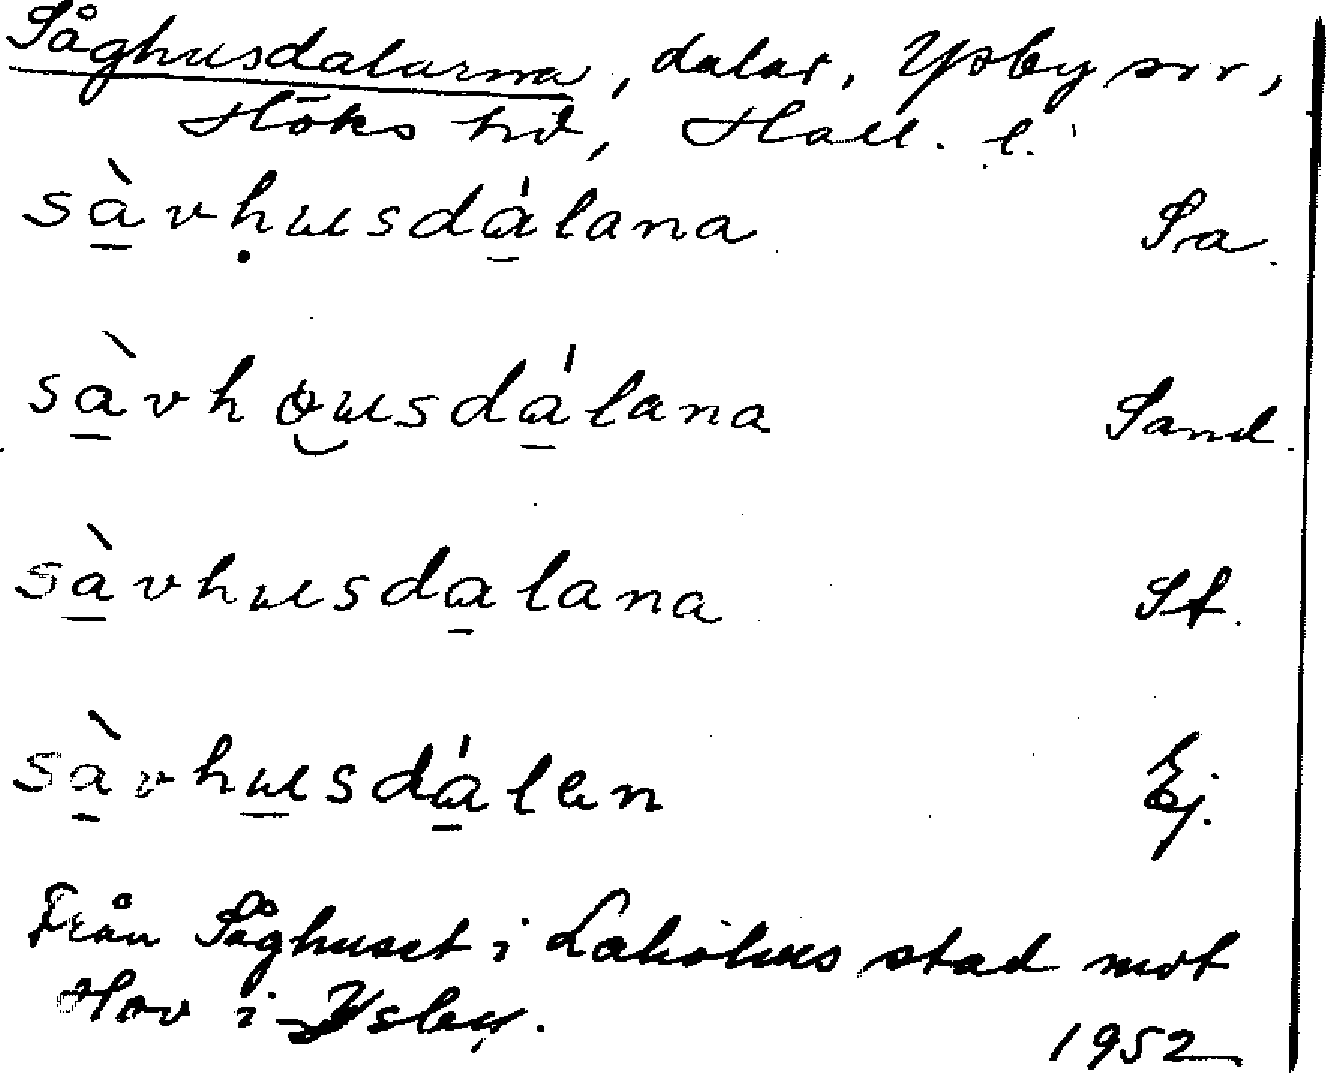 Såghusdalarna, dalar, Ysby srr,
Höks hd, Hall. l.
sàvhusdálana Sa.
sàvhousdálana Sand.
sàvhusdalana St.
sàvhusdálen Ej.
Från Såghuset i Laholms stad mot
Hov i Ysby.
1952